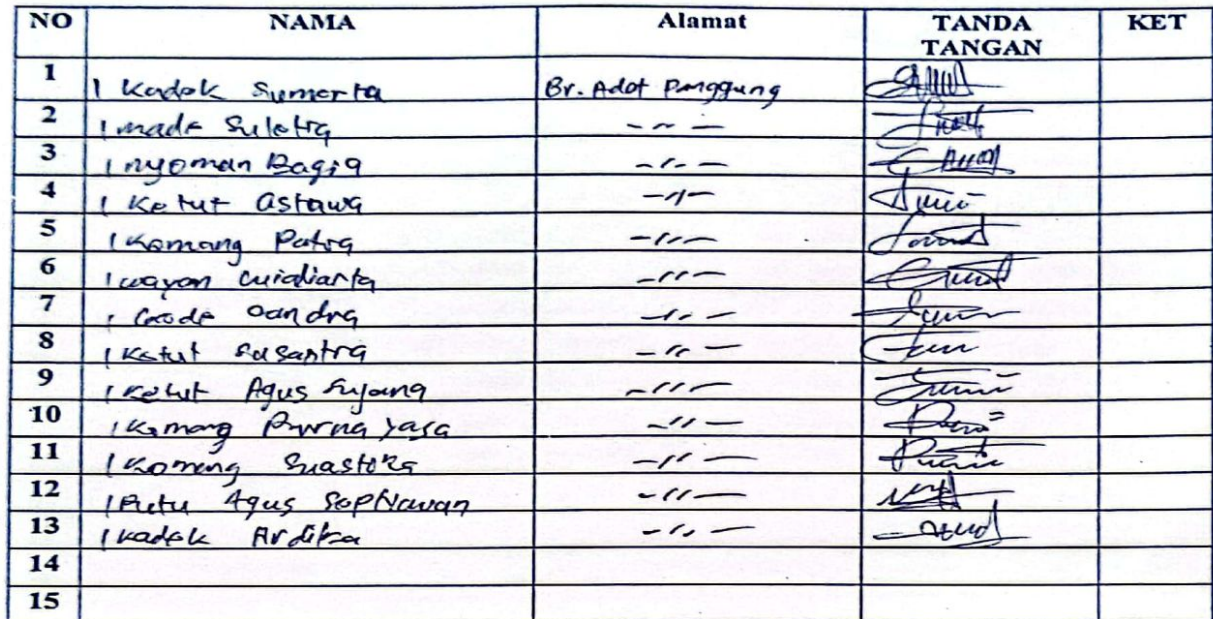 NO NAMA Alamat TANDA TANGAN KET
1 I Kadek Sumerta Br. Adat Panggung
2 I made Suletra -〃-
3 I nyoman Bagia -〃-
4 I Ketut Astawa -〃-
5 I Komang Patra -〃-
6 I wayan Widiarta -〃-
7 I Gede Candra -〃-
8 I Ketut Susantra -〃-
9 I Ketut Agus Sujana -〃-
10 I Komang Purna Yasa -〃-
11 I Komang Suastika -〃-
12 I Putu Agus Septiawan -〃-
13 I Kadek Ardika -〃-
14
15